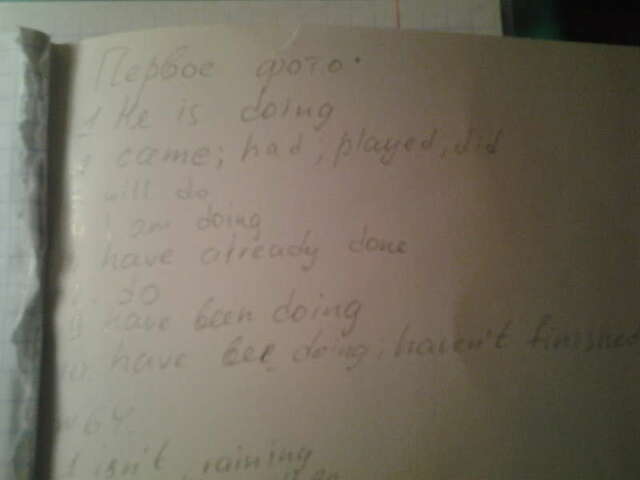 Первое фото.
1 He is doing
came; had; played, did
will do
I am doing
have already done
do
have been doing
10. have bee doing; haven't finished
64.
1 isn't raining